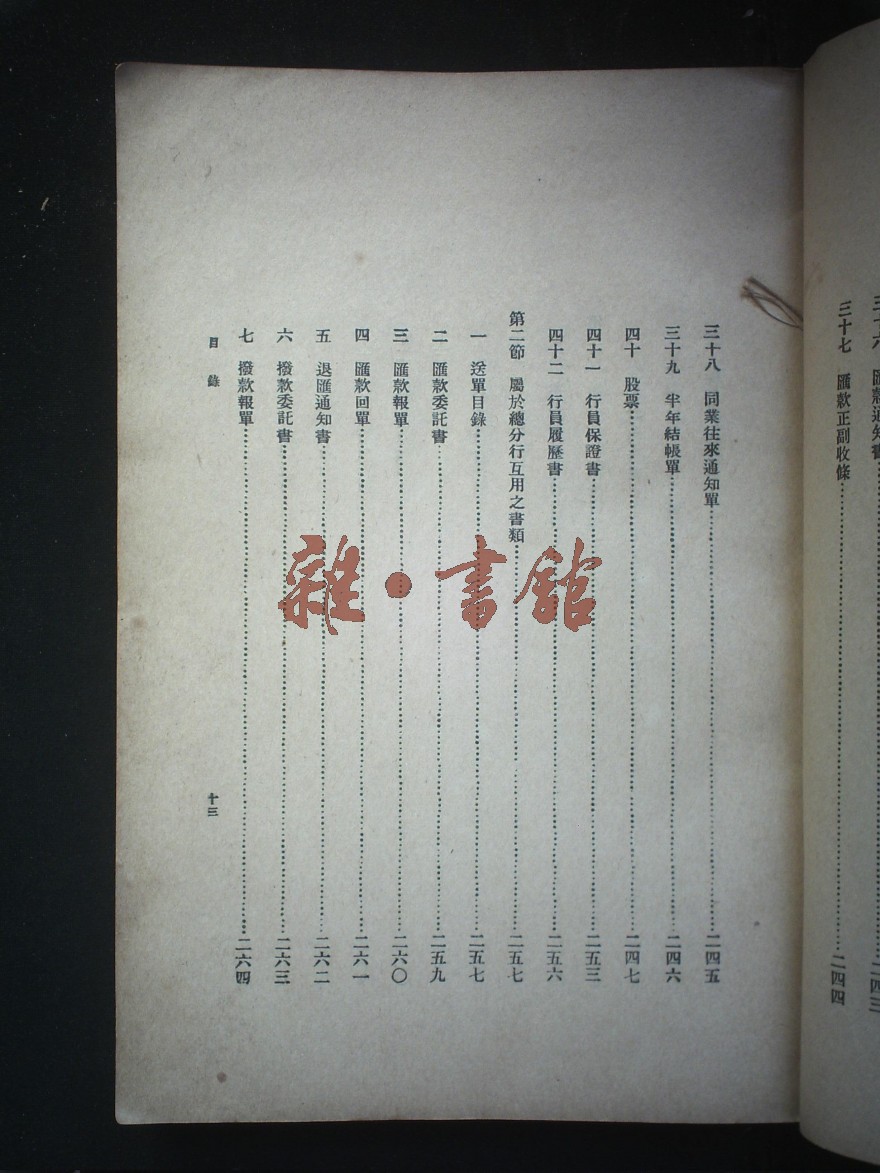 三十六 匯款通知書……二四三
三十七 匯款正副收條……二四四
三十八 同業往來通知單……二四五
三十九 半年結帳單……二四六
四十 股票……二四七
四十一 行員保證書……二五三
四十二 行員履歷書……二五六
第二節 屬於總分行互用之書類……二五七
一 送單目錄……二五七
二 匯款委託書……二五九
三 匯款報單……二六〇
四 匯款回單……二六一
五 退匯通知書……二六二
六 撥款委託書……二六三
七 撥款報單……二六四
目錄
十三
雜·書館